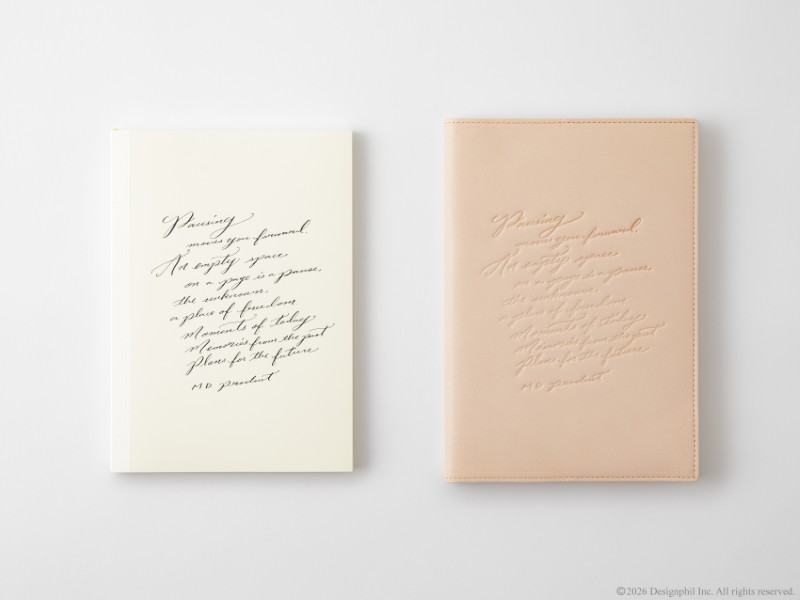 Pausing
moves you forward.
An empty space
on a page is a pause,
the unknown,
a place of freedom
Moments of today
Memories from the past
Plans for the future
MD product
Pausing
moves you forward.
An empty space
on a page is a pause,
the unknown,
a place of freedom
Moments of today
Memories from the past
Plans for the future
MD product
©2026 Designphil Inc. All rights reserved.